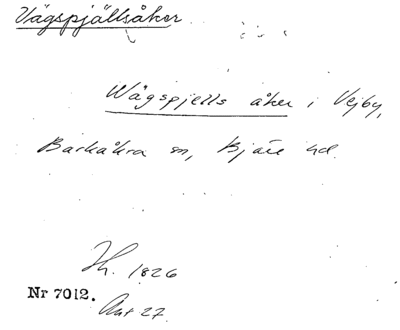 Vägspjällsåker
Wägspjells åker i Vejby,
Barkåkra sn, Bjäre hd.
Jh. 1826
Nr 7012.
Akt 27